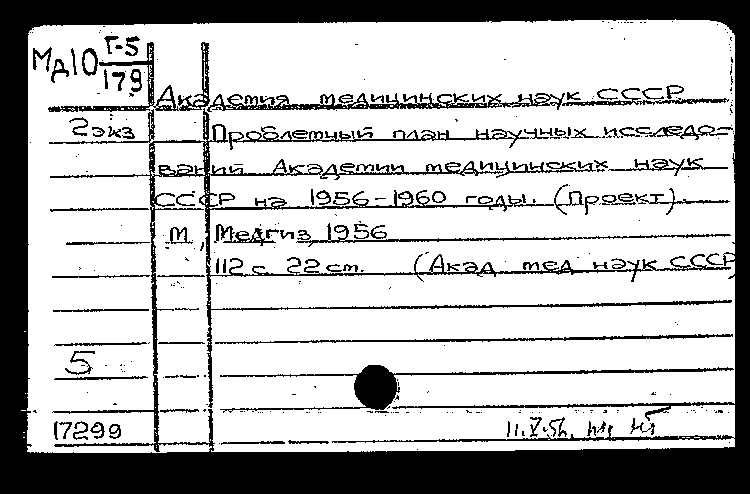 Мд10 Г-5
179
Академия медицинских наук СССР
2экз
Проблемный план научных исследо=
ваний Академии медицинских наук
СССР на 1956-1960 годы. (Проект).
М, Медгиз, 1956
112 с. 22 ст. (Акад мед наук СССР)
5
17299
11.X.56.